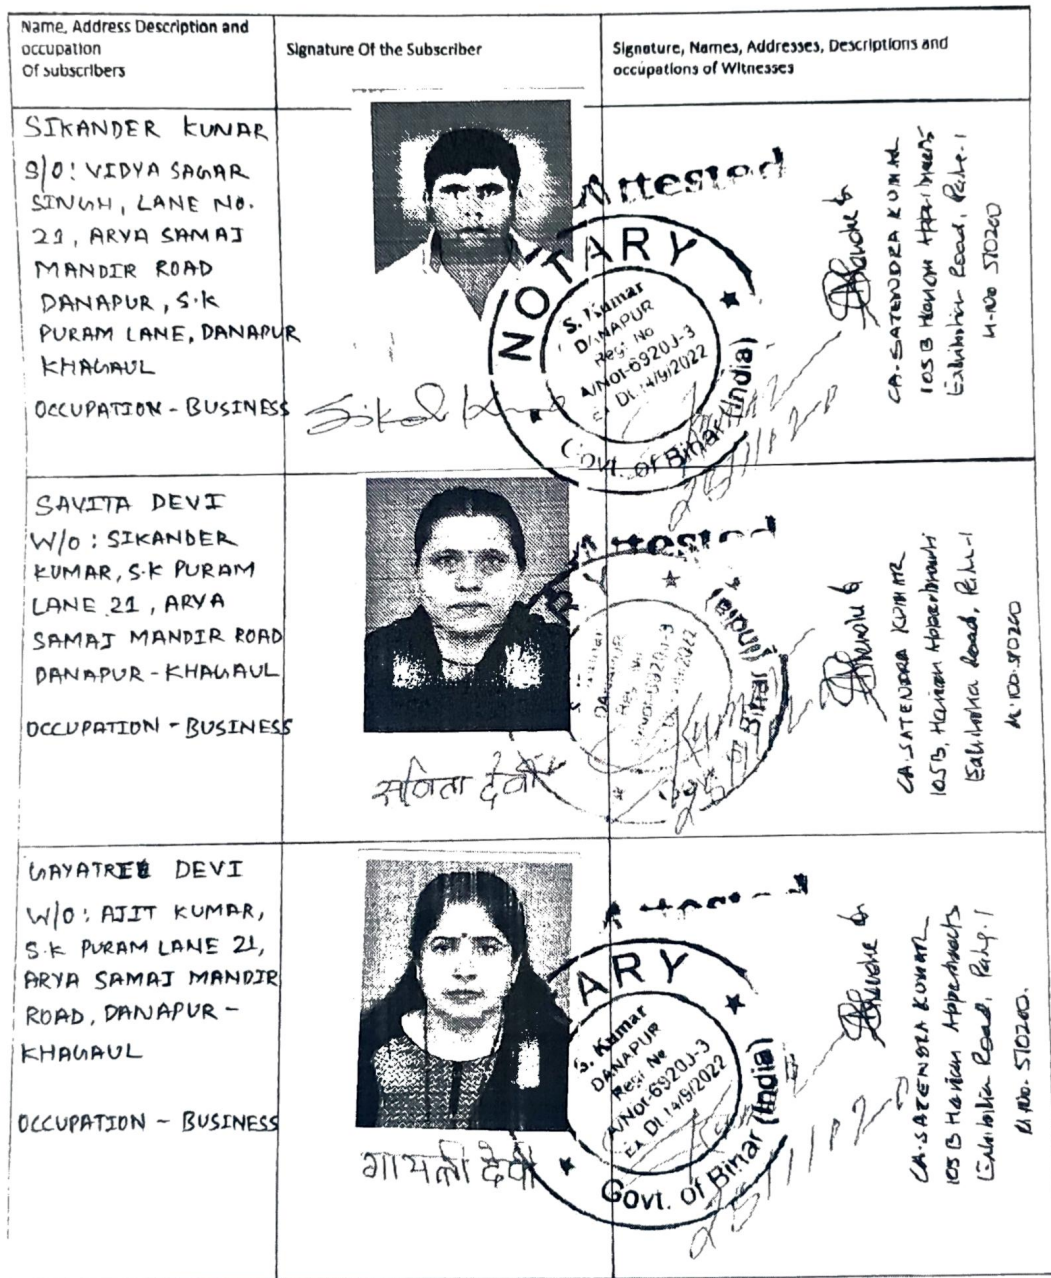 Name, Address Description and
occupation
Of subscribers
Signature Of the Subscriber
Signature, Names, Addresses, Descriptions and
occupations of Witnesses
SIKANDER KUNAR
S/O: VIDYA SAGAR
SINGH, LANE NO.
21, ARYA SAMAJ
MANDIR ROAD
DANAPUR, S.K
PURAM LANE, DANAPUR
KHAGAUL
OCCUPATION - BUSINESS
Attested
NOTARY
S. Kumar
DANAPUR
Regi. No
A/Not-6920J-3
Ex. Dt. 14/9/2022
Govt. of Bihar (India)
CA. SATENDRA KUMAR
105 B
Exhibition Road,
M-No 510200
SAVITA DEVI
W/O: SIKANDER
KUMAR, S.K PURAM
LANE 21, ARYA
SAMAJ MANDIR ROAD
DANAPUR - KHAGAUL
OCCUPATION - BUSINESS
Attested
DANAPUR
Regi. No
Bihar (India)
सविता देवी
CA. SATENDRA KUMAR
105B,
Road,
M. No. 510200
GAYATREE DEVI
W/O: AJIT KUMAR,
S.K PURAM LANE 21,
ARYA SAMAJ MANDIR
ROAD, DANAPUR -
KHAGAUL
OCCUPATION - BUSINESS
ARY
S. Kumar
DANAPUR
Regi. No
A/Not-6920J-3
Ex. Dt. 14/9/2022
Govt. of Bihar (India)
गायत्री देवी
CA. SATENDRA KUMAR
105 B
Exhibition Road,
M. No. 510200.